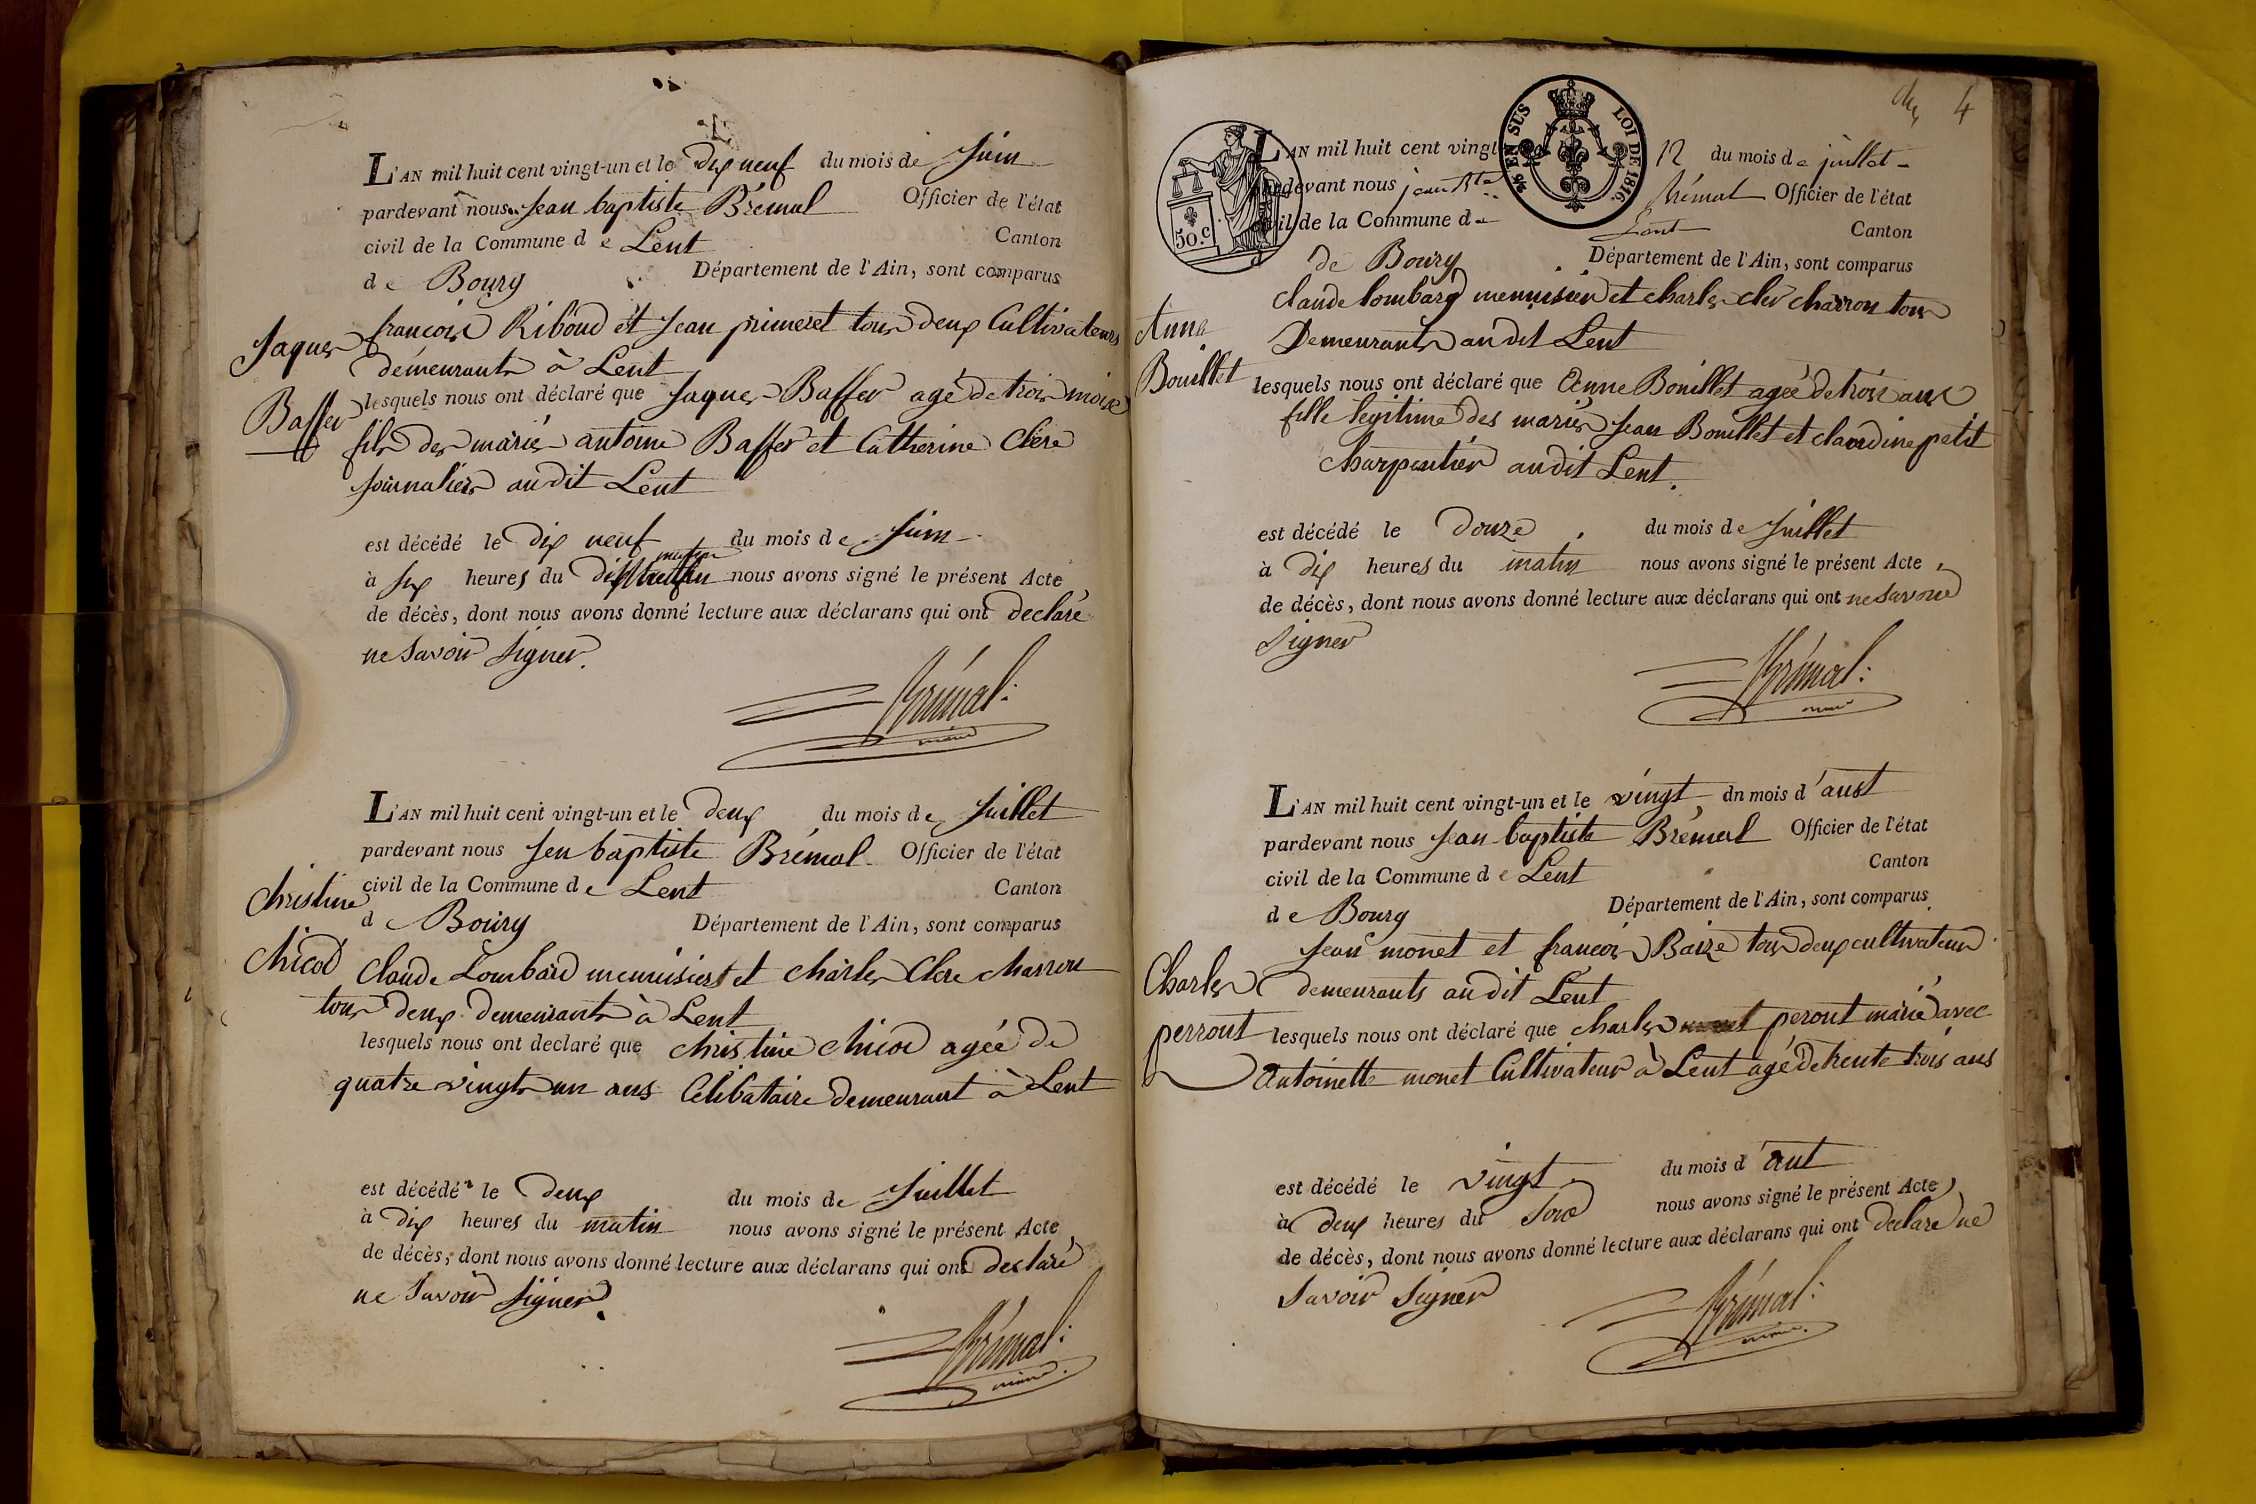 L'AN mil huit cent vingt-un et le dix neuf du mois de Juin
pardevant nous Jean baptiste Brémal Officier de l'état
civil de la Commune de Lent Canton
de Bourg Département de l'Ain, sont comparus
françois Riboud et Jean primeret tous deux Cultivateurs
demeurants à Lent
Jaques
Baffer
lesquels nous ont déclaré que Jaques Baffer agé de trois mois
fils des mariés antoine Baffer et Catherine Clere
Journaliers audit Lent
est décédé le dix neuf du mois de Juin
à six heures du matin nous avons signé le présent Acte
de décès, dont nous avons donné lecture aux déclarans qui ont declaré
ne Savoir Signer.
Brémal
maire
L'AN mil huit cent vingt-un et le deux du mois de Juillet
pardevant nous Jen baptiste Brémal Officier de l'état
civil de la Commune de Lent Canton
de Bourg Département de l'Ain, sont comparus
Christine
Chicod
Claude Lombard menuisiers et Charles Clere charron
tous deux demeurants à Lent
lesquels nous ont declaré que Christine Chicod agée de
quatre vingts un ans Celibataire demeurant à Lent
est décédé le deux du mois de Juillet
à dix heures du matin nous avons signé le présent Acte
de décès, dont nous avons donné lecture aux déclarans qui ont declaré
ne Savoir Signer.
Brémal
maire
4
50.C
EN SUS LOI DE 1816.
L'AN mil huit cent vingt 12 du mois de juillet
pardevant nous jean Bte Brémal Officier de l'état
civil de la Commune de Lent Canton
de Bourg Département de l'Ain, sont comparus
Claude Lombard menuisier et charles cler charron tous
Demeurants audit Lent
Anne
Bouillet
lesquels nous ont déclaré que Anne Bouillet agée de trois ans
fille legitime des mariés Jean Bouillet et claudine petit
Charpentier audit Lent.
est décédé le douze du mois de Juillet
à dix heures du matin nous avons signé le présent Acte
de décès, dont nous avons donné lecture aux déclarans qui ont ne Savoir
Signer
Brémal
maire
L'AN mil huit cent vingt-un et le vingt dn mois d'aust
pardevant nous Jean baptiste Brémal Officier de l'état
civil de la Commune de Lent Canton
de Bourg Département de l'Ain, sont comparus
Jean monet et francois Baize tous deux cultivateurs
demeurants audit Lent
Charles
perrout
lesquels nous ont déclaré que charles peront marié avec
Antoinette monet Cultivateur à Lent agé de trente trois ans
est décédé le vingt du mois d'aut
à deux heures du Soir nous avons signé le présent Acte
de décès, dont nous avons donné lecture aux déclarans qui ont declaré ne
Savoir Signer
Brémal
maire